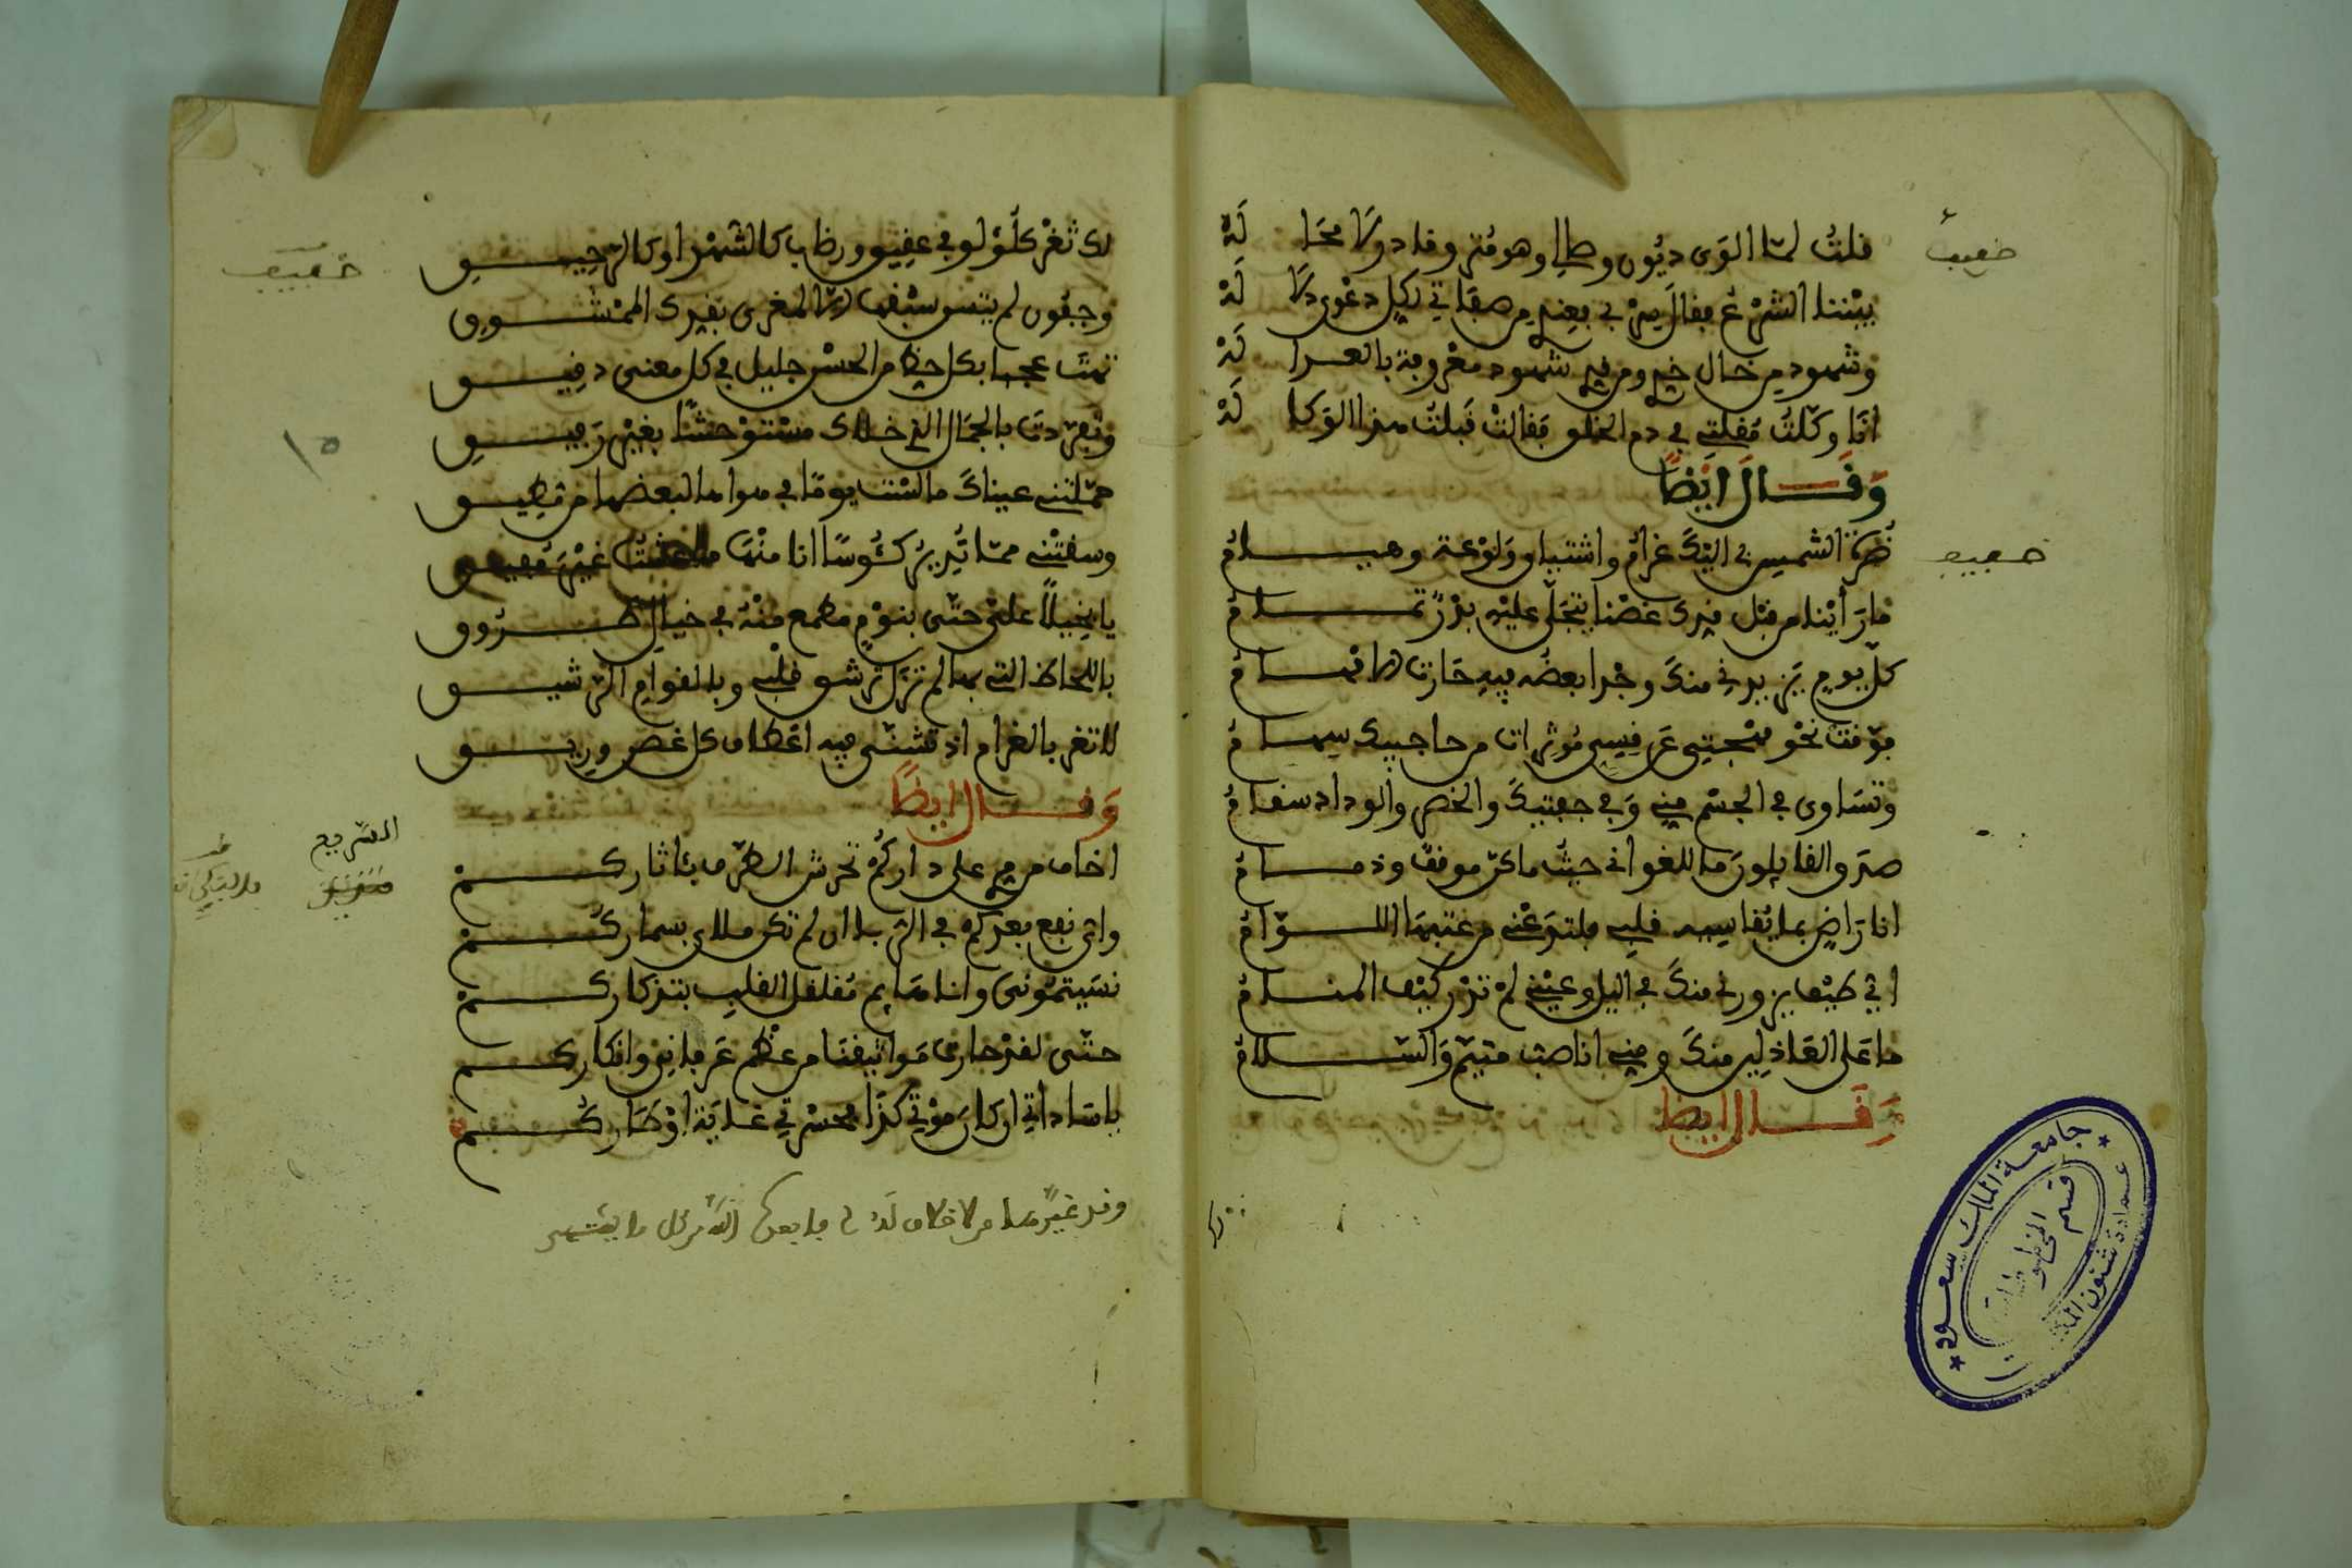 خفيف
قلتُ لمّا الوى ديُون وصالي وهو مُثرٍ وقادر لا محَالَهْ
بيْننا الشرْع قال سِرْ بي بعِندي من صفاتي لكل دعْوى دلالَهْ
وشهود من خال خدي ومن قدي شهود معْروفة بالعدالَهْ
انَا وكّلتُ مُقلتي في دم الخلق فقالتْ قَبلتُ هذا الوكالَهْ
وَقَال ايْضًا
خفيف
نُصرَة الشمس لي اليْكَ غرامُ واشتياق ولوْعة وهيامُ
ما رَأيْنا من قبْل قدك غصْنا يتجَلّى عليْه بدْرٌ تمامُ
كلّ يوم يَزيدني منكَ وجْدا بعضُه فيه حَارت الافهامُ
فوّقتْ نحْو مهْجتِي عَن قِسِيٍّ مُوثرات من حاجبيك سهامُ
وتسَاوى في الجسْم مِني وَفي جفنيكَ والخصر والوداد سقامُ
صدَق القايلونَ ما للغواني حيثُ ما كنّ موقفٌ وذمامُ
انا رَاضٍ بما يُقاسِيه قلبي فلتدَعْني من عتبهَا اللوّامُ
اي طيْف يزورني منكَ في اليل وعيْني لمْ تدْر كيْف المنامُ
ما عَلى العَاذِلين منكَ ومني انا صب متيّم وَالسّلامُ
وَقَال ايضا
خفيف
لك ثغْر كلؤلؤ في عقِيق ورضاب كالشهْد او كالرّحِيق
وجفُون لم يمتشق سيْفها الا لمغرى بقدك الممْشوق
تهْتَ عجبا بكل حظ من الحسْن جليل في كل معنى دقيق
وتفرّدتَ بالجمَال الذي خلاك مسْتوْحشًا بغيْر رَفيق
حمّلتني عيناكَ ما لسْتُ يومًا في هواها لبعضها من مطيق
وسقتْني ممّا تُدير كُئوسًا انا منْهَا ما عشتُ غيْر مُفيق
يا بخِيلاً علىّ حتّى بنوْمٍ مطمع منْهُ في خيالٍ طَرُوق
باللحاظ التي بها لم تزل ترشق قلْبي وبالقوام الرّشيق
لا تغر بالغرام اذ تتثنّى فيه اعْطاف كل غصن وريق
وَقَال ايضًا
السّريع
اخاف من مري على داركُم تحرّش الطرْف بئاثاركمْ
واي نفع بعدكم في الرّبا ان لم تكن ملاى بسماركُمْ
نسَيتمُونى وانا هَايم مُقلقل القلب بتذكاركمْ
حتّى لقدْ حارت مَواثيقنَا من عظم عرفاني وانكاركم
يا سَاداتي ان كانَ موْتي كذَا بحسْرتي غايَة اوْطَاركُم
جامعة الملك سعود
عمادة شئون المكتبات
قسم المخطوطات